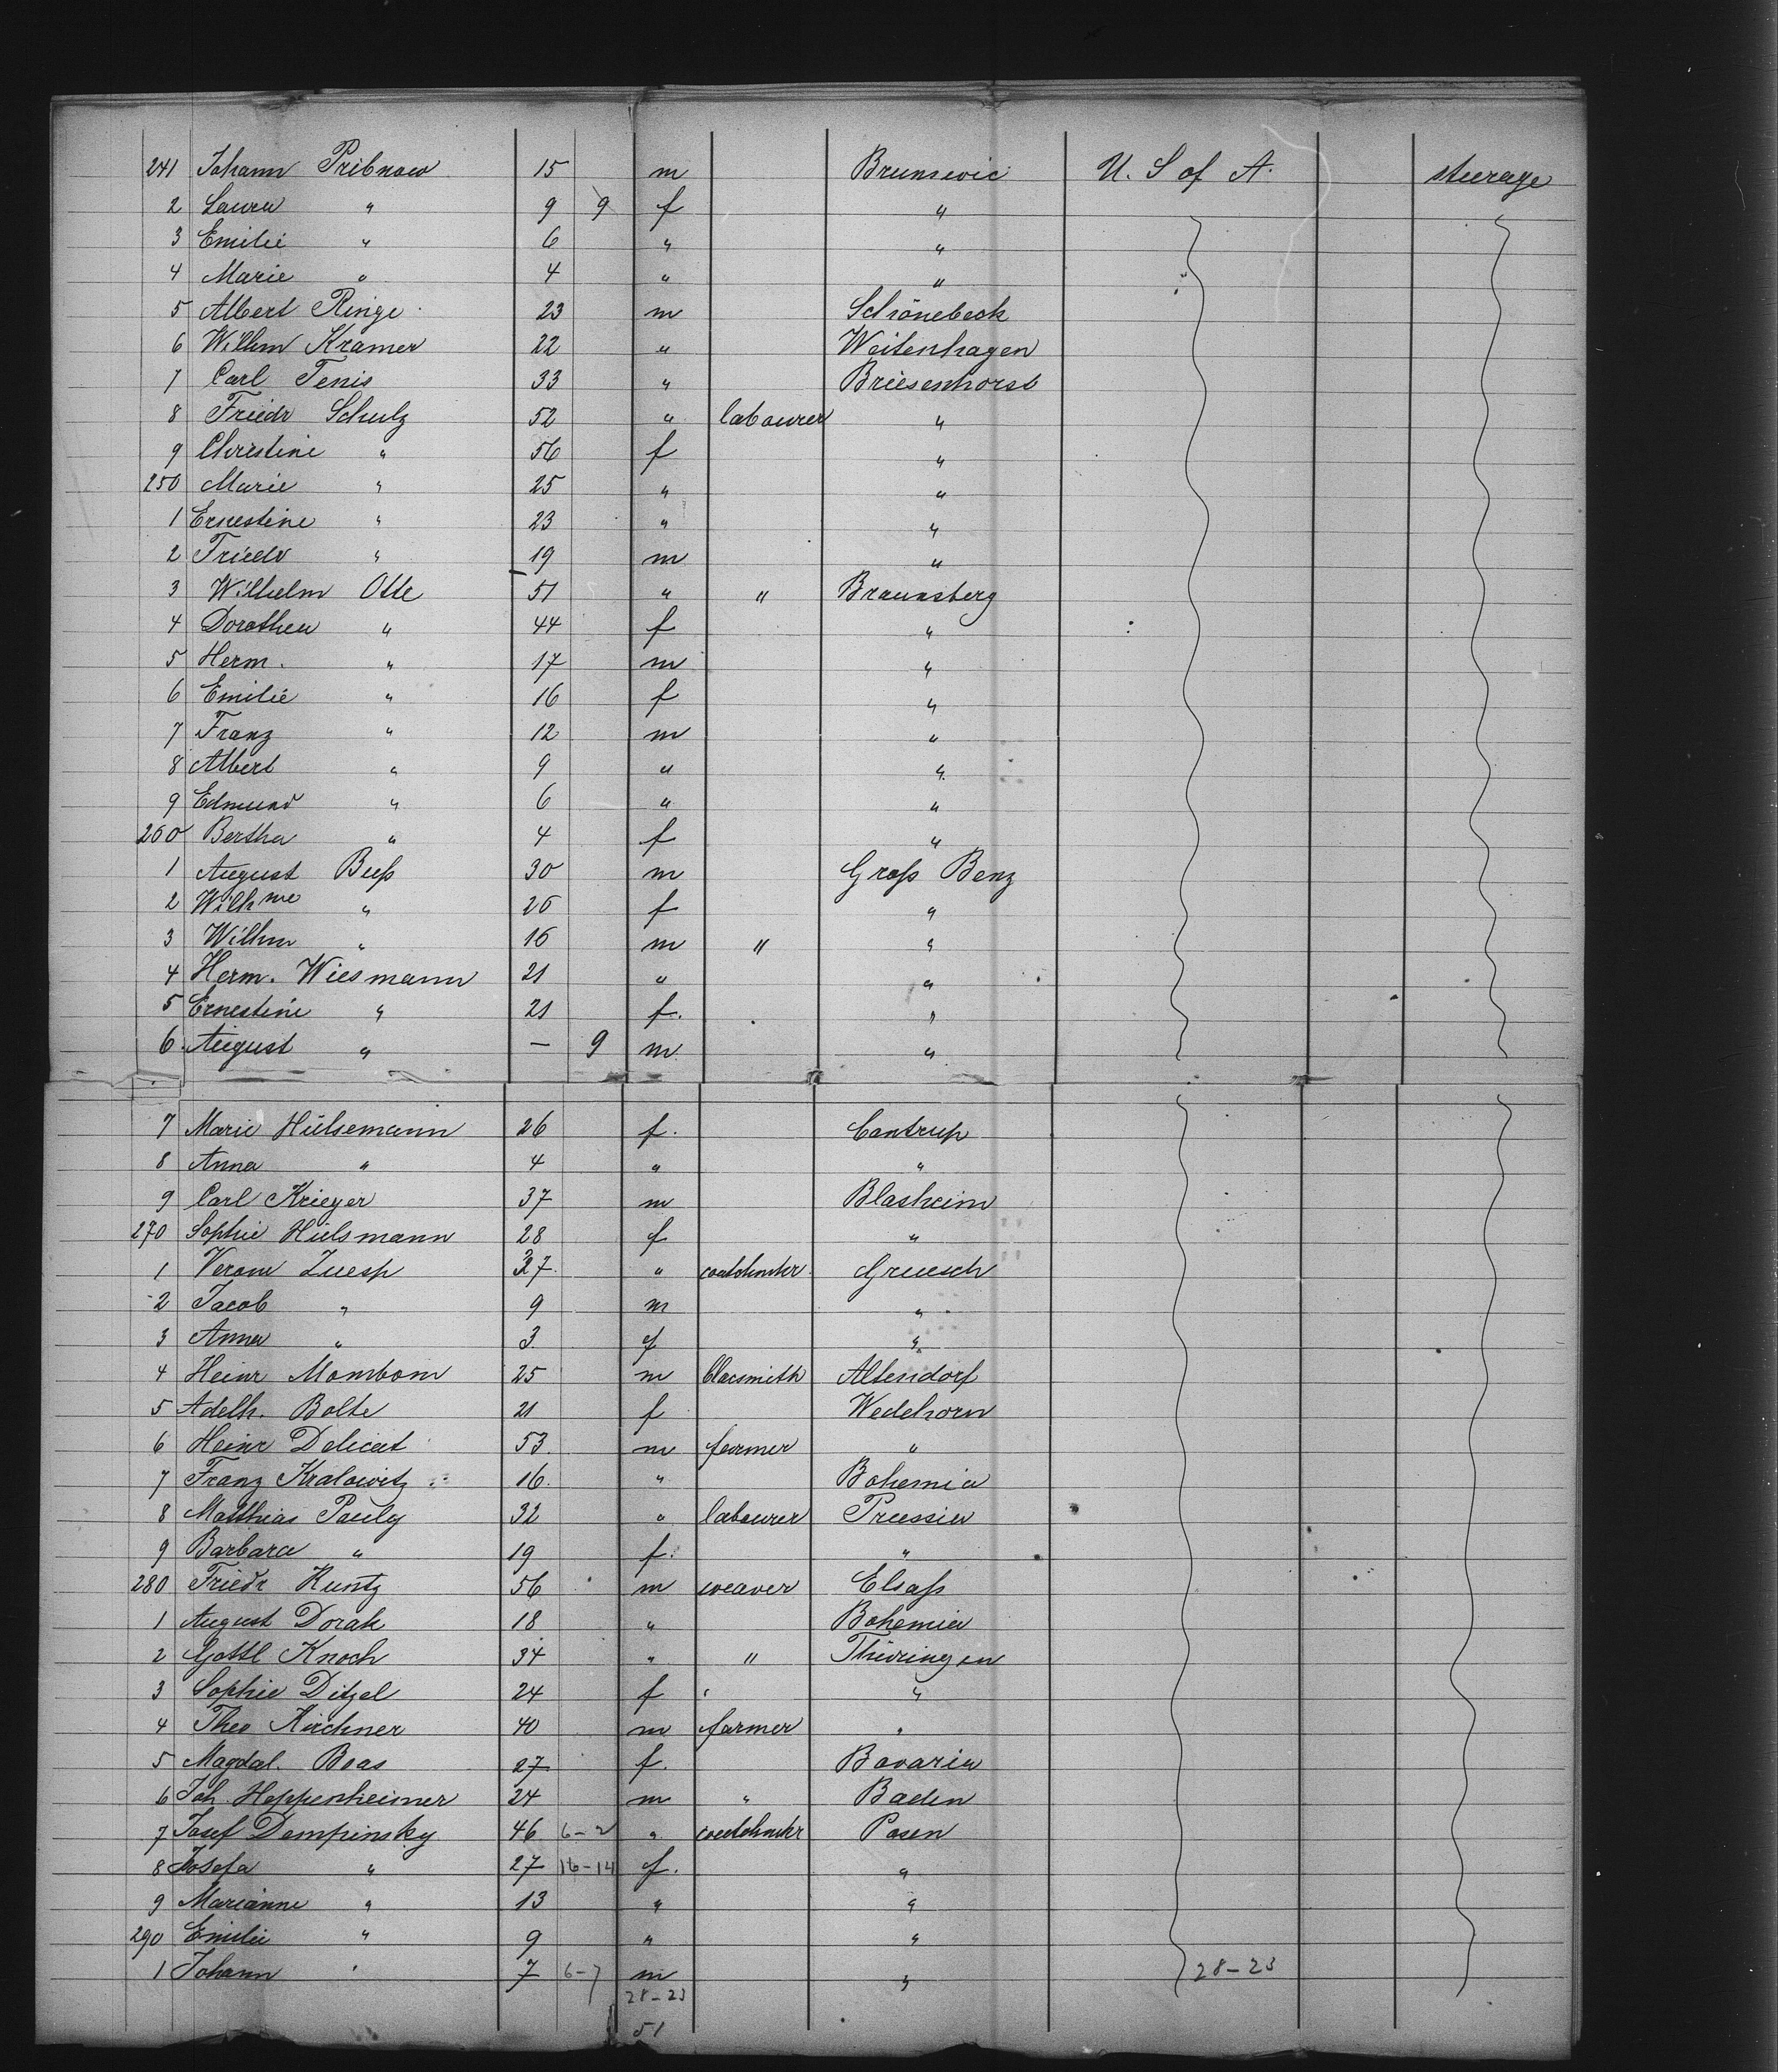 241 Johann Pribnow 15 m Brunswic U. S of A. steerage
2 Laura " 9 9 f "
3 Emilie " 6 " "
4 Marie " 4 " "
5 Albert Ringe 23 m Schönebeck
6 Wilhm Kramer 22 " Weitenhagen
7 Carl Tenis 33 " Briesenhorst
8 Friedr Schulz 52 " labourer "
9 Christine " 56 f "
250 Marie " 25 " "
1 Ernestine " 23 " "
2 Friedr " 19 m "
3 Wilhelm Otte 51 " " Braunsberg
4 Dorothea " 44 f "
5 Herm. " 17 m "
6 Emilie " 16 f "
7 Franz " 12 m "
8 Albert " 9 " "
9 Edmund " 6 " "
260 Bertha " 4 f "
1 August Buß 30 m Groß Benz
2 Wilhme " 26 f "
3 Wilhm " 16 m " "
4 Herm. Wiesmann 21 " "
5 Ernestine " 21 f. "
6 August " — 9 m "
7 Marie Hülsemann 26 f. Cantrup
8 Anna " 4 " "
9 Carl Krieger 37 m Blasheim
270 Sophie Hülsmann 28 f "
1 Veron Zuesp 37 " Gruesch
2 Jacob " 9 m "
3 Anna " 3 f "
4 Heinr Mombom 25 m blacsmith Altendorf
5 Adelh. Bolte 21 f Wedehorn
6 Heinr Delicat 53 m farmer "
7 Franz Kralowitz 16 " Bohemia
8 Matthias Pauly 32 " labourer Prussia
9 Barbara " 19 f. "
280 Friedr Kuntz 56 m weaver Elsaß
1 August Dorak 18 " Bohemia
2 Gottl Knoch 34 " " Thüringen
3 Sophie Ditzel 24 f "
4 Theo Kirchner 40 m farmer "
5 Magdal. Boas 27 f. Bavaria
6 Joh. Heppenheimer 24 m " Baden
7 Josef Dempinsky 46 6-2 " Posen
8 Josefa " 27 16-14 f. "
9 Marianne " 13 " "
290 Emilie " 9 " "
1 Johann " 7 6-7 m " 28-23
28-23
51